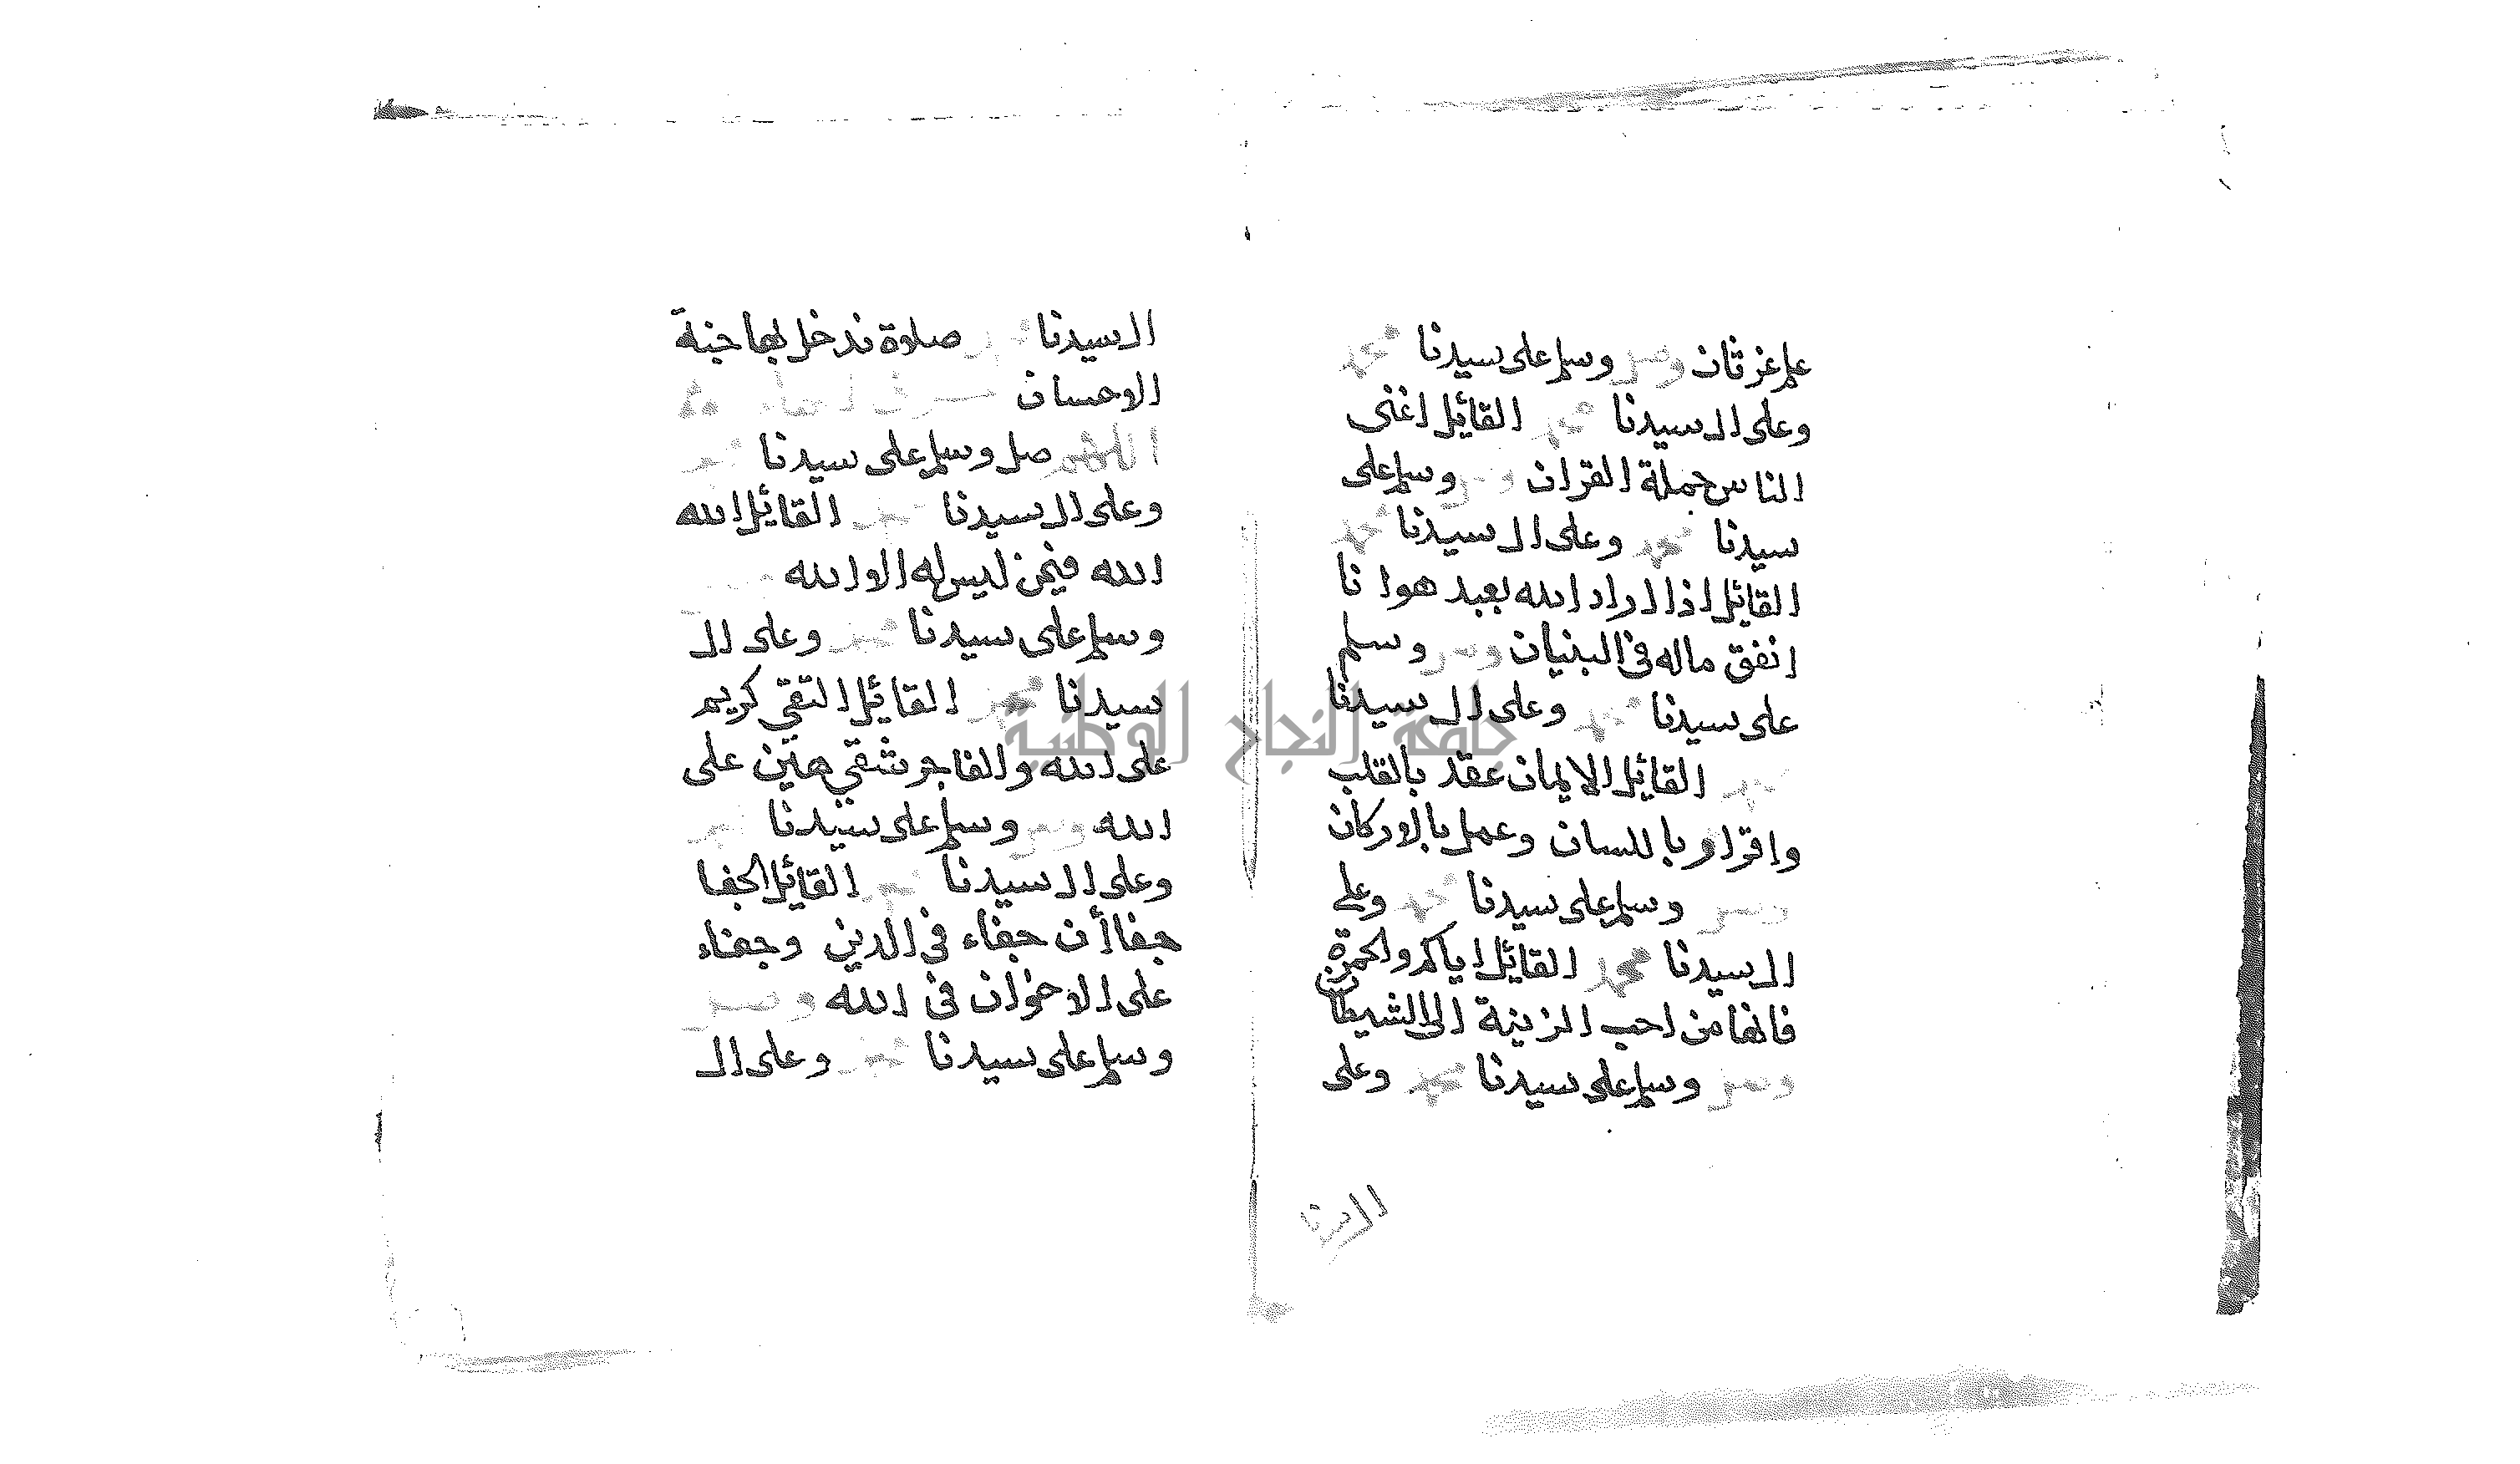 علم عرفان وصل وسلم على سيدنا محمد
وعلى ال سيدنا محمد القائل اغنى
الناس حملة القران وصل وسلم على
سيدنا محمد وعلى ال سيدنا محمد
القائل اذا اراد الله بعبد هوانا
انفق ماله في البنيان وصل وسلم
على سيدنا محمد وعلى ال سيدنا
محمد القائل الايمان عقد بالقلب
واقرار باللسان وعمل بالاركان
وصل وسلم على سيدنا محمد وعلى
ال سيدنا محمد القائل اياكم والحمرة
فانها من احب الزينة الى الشيطان
وصل وسلم على سيدنا محمد وعلى
ال سيدنا
ال سيدنا محمد صلاة ندخل بها جنة
الاحسان
اللهم صل وسلم على سيدنا محمد
وعلى ال سيدنا محمد القائل الله
الله فيمن ليس له الا الله
وسلم على سيدنا محمد وعلى ال
سيدنا محمد القائل التقي كريم
على الله والفاجر شقي هين على
الله وصل وسلم على سيدنا محمد
وعلى ال سيدنا محمد القائل الجفا
جفاأن جفاء في الدين وجفاء
على الاخوان في الله وصل
وسلم على سيدنا محمد وعلى ال
جامعة النجاح الوطنية